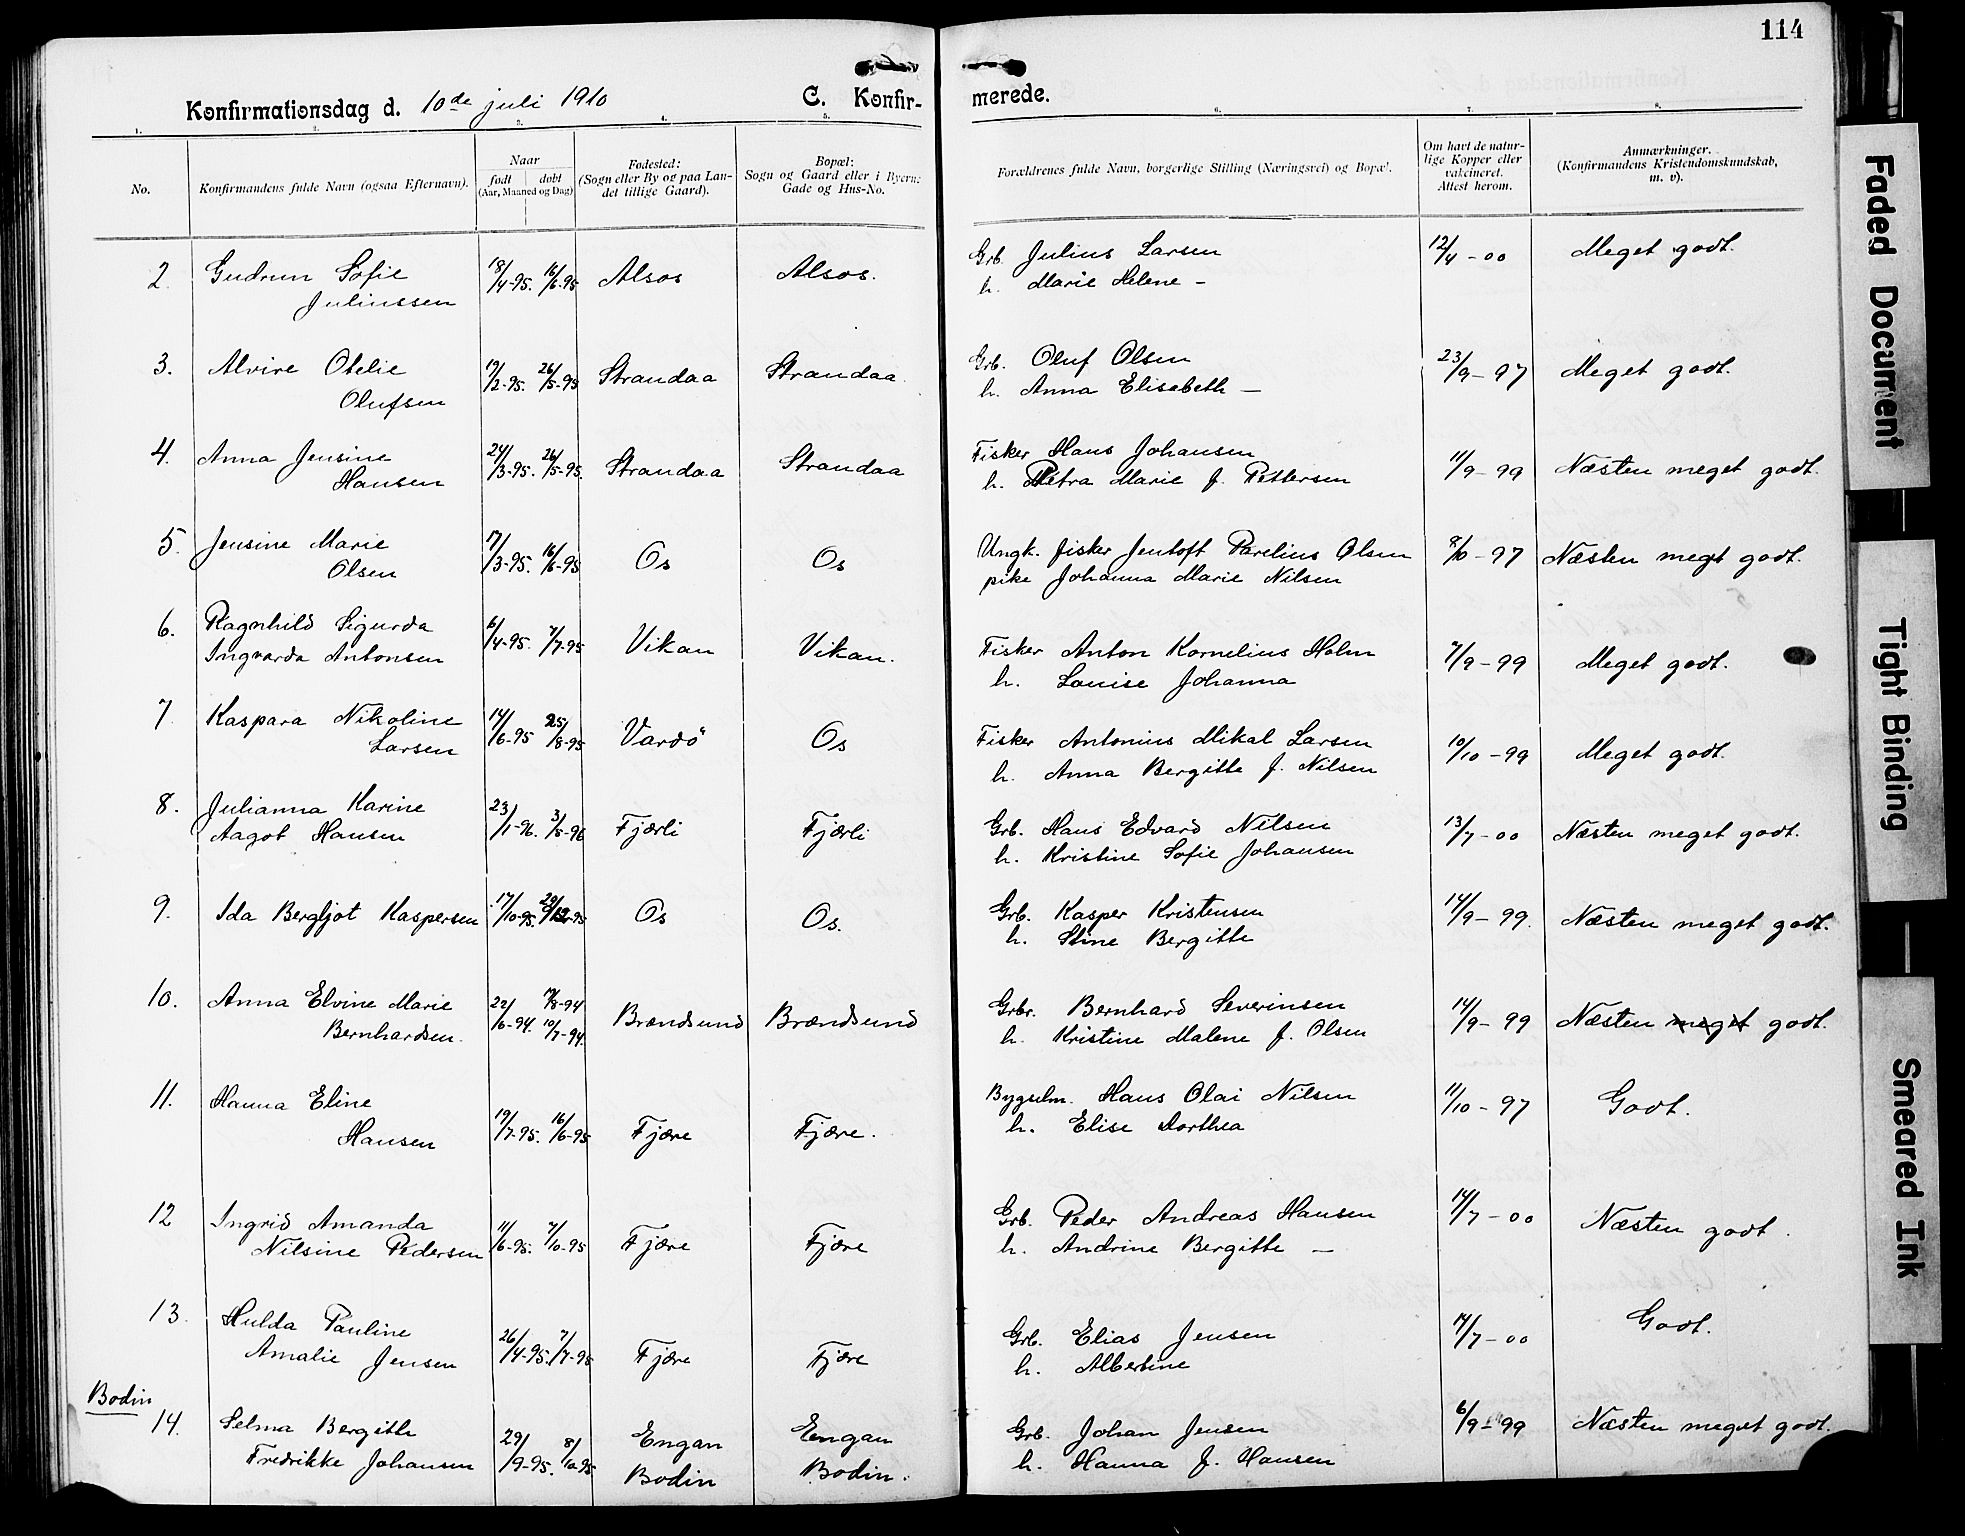 114
Konfirmationsdag d. 10de juli 1910 C. Konfir-merede.
1. 2. 3. 4. 5. 6. 7. 8.
No.
Konfirmandens fulde Navn (ogsaa Efternavn).
Naar
født døbt
(Aar, Maaned og Dag)
Fødested:
(Sogn eller By og paa Lan-
det tillige Gaard).
Bopæl:
Sogn og Gaard eller i Byerne
Gade og Hus-No.
Forældrenes fulde Navn, borgerlige Stilling (Næringsvei) og Bopæl.
Om havt de natur-
lige Kopper eller
vakcineret.
Attest herom.
Anmærkninger.
(Konfirmandens Kristendomskundskab,
m. v).
2. Gudrun Sofie 18/4-95. 16/6-95 Alsos Alsos. Grb. Julius Larsen 12/4-00 Meget godt.
Juliussen h. Marie Helene -
3. Alvire Otelie 17/2-95. 26/5-95 Strandaa Strandaa Grb. Oluf Olsen 23/9-97 Meget godt.
Olufsen h. Anna Elisabeth -
4. Anna Jensine 24/3-95. 26/5-95. Strandaa Strandaa Fisker Hans Johansen 11/9-99 Næsten meget godt.
Hansen h. Petra Marie f. Pettersen
5. Jensine Marie 17/3-95. 16/6-95 Os Os Ungk. fisker Jentoft Parelius Olsen 8/10-97 Næsten meget godt.
Olsen pike Johanna Marie Nilsen
6. Ragnhild Sigurda 6/4-95. 7/7-95 Vikan Vikan. Fisker Anton Kornelius Holm 7/9-99 Meget godt.
Ingvarda Antonsen h. Louise Johanna
7. Kaspara Nikoline 14/6-95 25/8-95 Vardö Os Fisker Antonius Mikal Larsen 10/10-99 Meget godt.
Larsen h. Anna Bergitte f. Nilsen
8. Julianna Karine 23/1-96. 3/5-96 Fjærli Fjærli Grb. Hans Edvard Nilsen 13/7-00 Næsten meget godt.
Aagot Hansen h. Kristine Sofie Johansen
9. Ida Bergljot Kaspersen 17/10-95. 29/12-95 Os Os. Grb. Kasper Kristensen 14/9-99. Næsten meget godt.
h. Stine Bergitte
10. Anna Elvine Marie 22/6-94. 17/8-94 10/7-94. Brændsund Brændsund Grbr. Bernhard Severinsen 14/9-99 Næsten meget godt.
Bernhardsen. h. Kristine Malene f. Olsen
11. Hanna Eline 19/7-95. 16/6-95 Fjære Fjære. Bygselm. Hans Olai Nilsen 11/10-97 Godt.
Hansen h. Elise Dorthea
12 Ingrid Amanda 11/6-95. 7/10-95 Fjære Fjære Grb. Peder Andreas Hansen 14/7-00 Næsten godt.
Nilsine Pedersen h. Andrine Bergitte -
13. Hulda Pauline 26/4-95. 7/7-95 Fjære Fjære Grb. Elias Jensen 14/7-00 Godt.
Amalie Jensen h. Albertine
Bodin
14. Selma Bergith 29/9-95. 8/10-95 Engan Engan Grb. Johan Jensen 6/9-99 Næsten meget godt.
Fredrikke Johansen Bodin Bodin. h. Hanna f. Hansen
Faded Document
Tight Binding
Smeared Ink